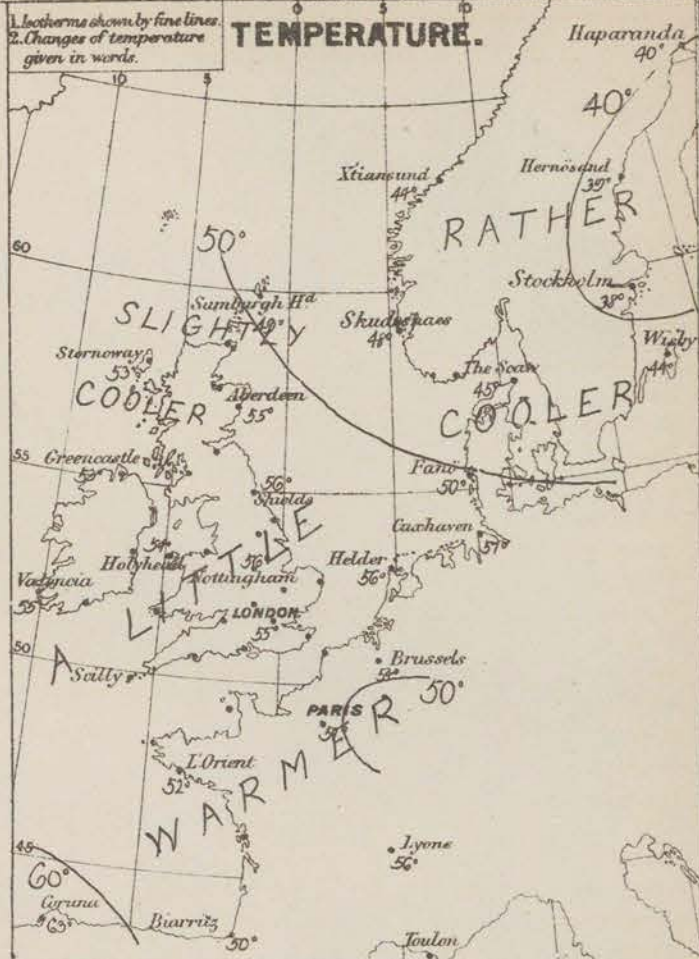 1. Isotherms shown by fine lines.
2. Changes of temperature
given in words.
TEMPERATURE.
10
5
0
5
10
Haparanda
40°
40°
Xtiansund
44°
Hernösand
39°
RATHER
50°
60
Stockholm
38°
Sumburgh Hd
SLIGHTLY
Skudesnaes
48°
Wisby
44°
Stornoway
53°
The Scaw
45°
COOLER
Aberdeen
55°
COOLER
55
Greencastle
Fanö
50°
56°
Shields
Cuxhaven
57°
Holyhead
54°
56°
Nottingham
Helder
56°
Valencia
55°
LONDON
55°
A LITTLE
50
Scilly
Brussels
50°
PARIS
L'Orient
52°
WARMER
45
60°
Lyons
56°
Coruna
63°
Biarritz
50°
Toulon